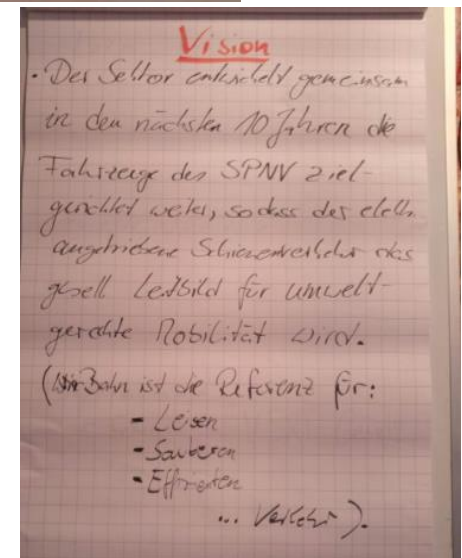 Vision
· Der Sektor entwickelt gemeinsam
in den nächsten 10 Jahren die
Fahrzeuge des SPNV ziel-
gerichtet weiter, sodass der elektr.
angetriebene Schienenverkehr das
gesell Leitbild für umwelt-
gerechte Mobilität wird.
(Bahn ist die Referenz für:
- Leisen
- Sauberen
- Effizienten
... Verkehr).